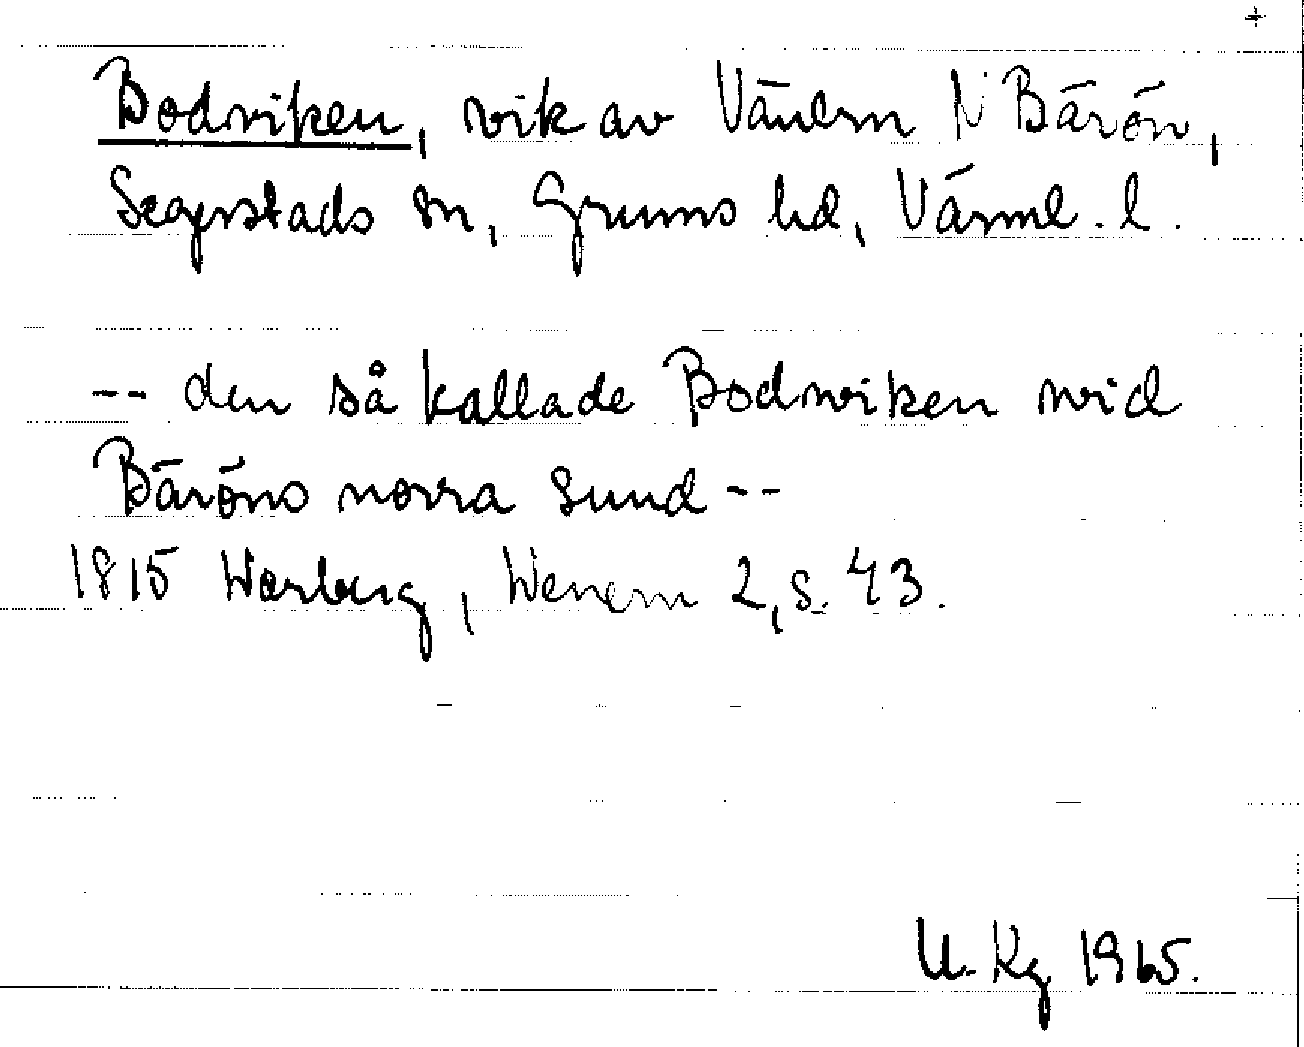 +
Bodviken, vik av Vänern N Bärön,
Segerstads sn, Grums hd, Värml. l.
-- den så kallade Bodwiken wid
Bäröns norra sund --
1815 Warberg, Wenern 2, s. 43.
U. Kg 1965.